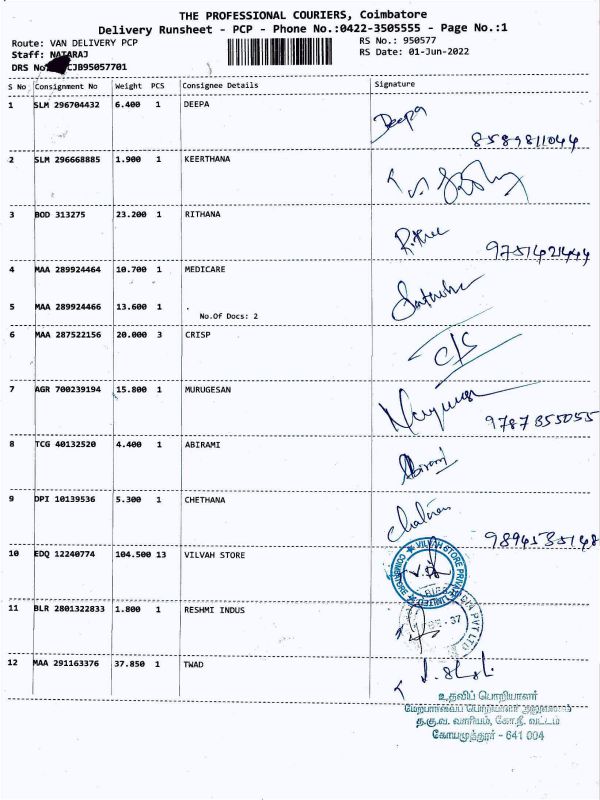 THE PROFESSIONAL COURIERS, Coimbatore
Delivery Runsheet - PCP - Phone No.:0422-3505555 - Page No.:1
Route: VAN DELIVERY PCP RS No.: 950577
Staff: NATARAJ RS Date: 01-Jun-2022
DRS No CJB95057701
S No Consignment No Weight PCS Consignee Details Signature
1 SLM 296704432 6.400 1 DEEPA Deepa
8589811044
2 SLM 296668885 1.900 1 KEERTHANA
3 BOD 313275 23.200 1 RITHANA
9751421444
4 MAA 289924464 10.700 1 MEDICARE
5 MAA 289924466 13.600 1 .
No.Of Docs: 2
6 MAA 287522156 20.000 3 CRISP
7 AGR 700239194 15.800 1 MURUGESAN
9787355055
8 TCG 40132520 4.400 1 ABIRAMI Abirami
9 DPI 10139536 5.300 1 CHETHANA
9894535148
10 EDQ 12240774 104.500 13 VILVAH STORE VILVAH STORE PRIVATE LIMITED
11 BLR 2801322833 1.800 1 RESHMI INDUS PVT LTD
12 MAA 291163376 37.850 1 TWAD
உதவிப் பொறியாளர்
மேற்பார்வைப் பொறியாளர் அலுவலகம்
த.கு.வ. வாரியம், கோ.நீ. வட்டம்
கோயமுத்தூர் - 641 004